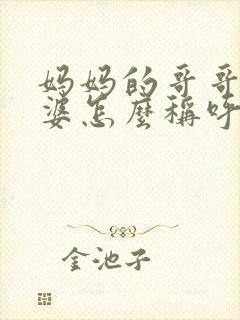 妈妈的哥哥
婆怎麼稱呼
金池子